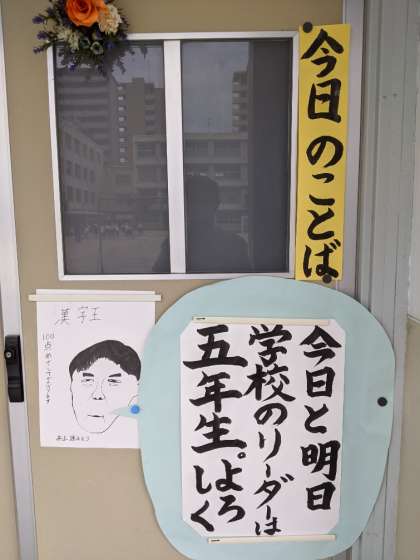 今日のことば
今日と明日
学校のリーダーは
五年生。よろしく
漢字王
100点めざしてがんばります